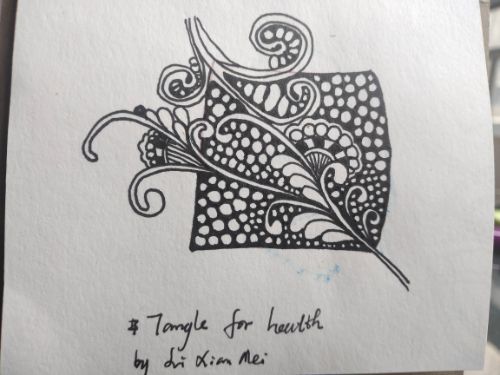 # Tangle for health
by Li Xian Mei